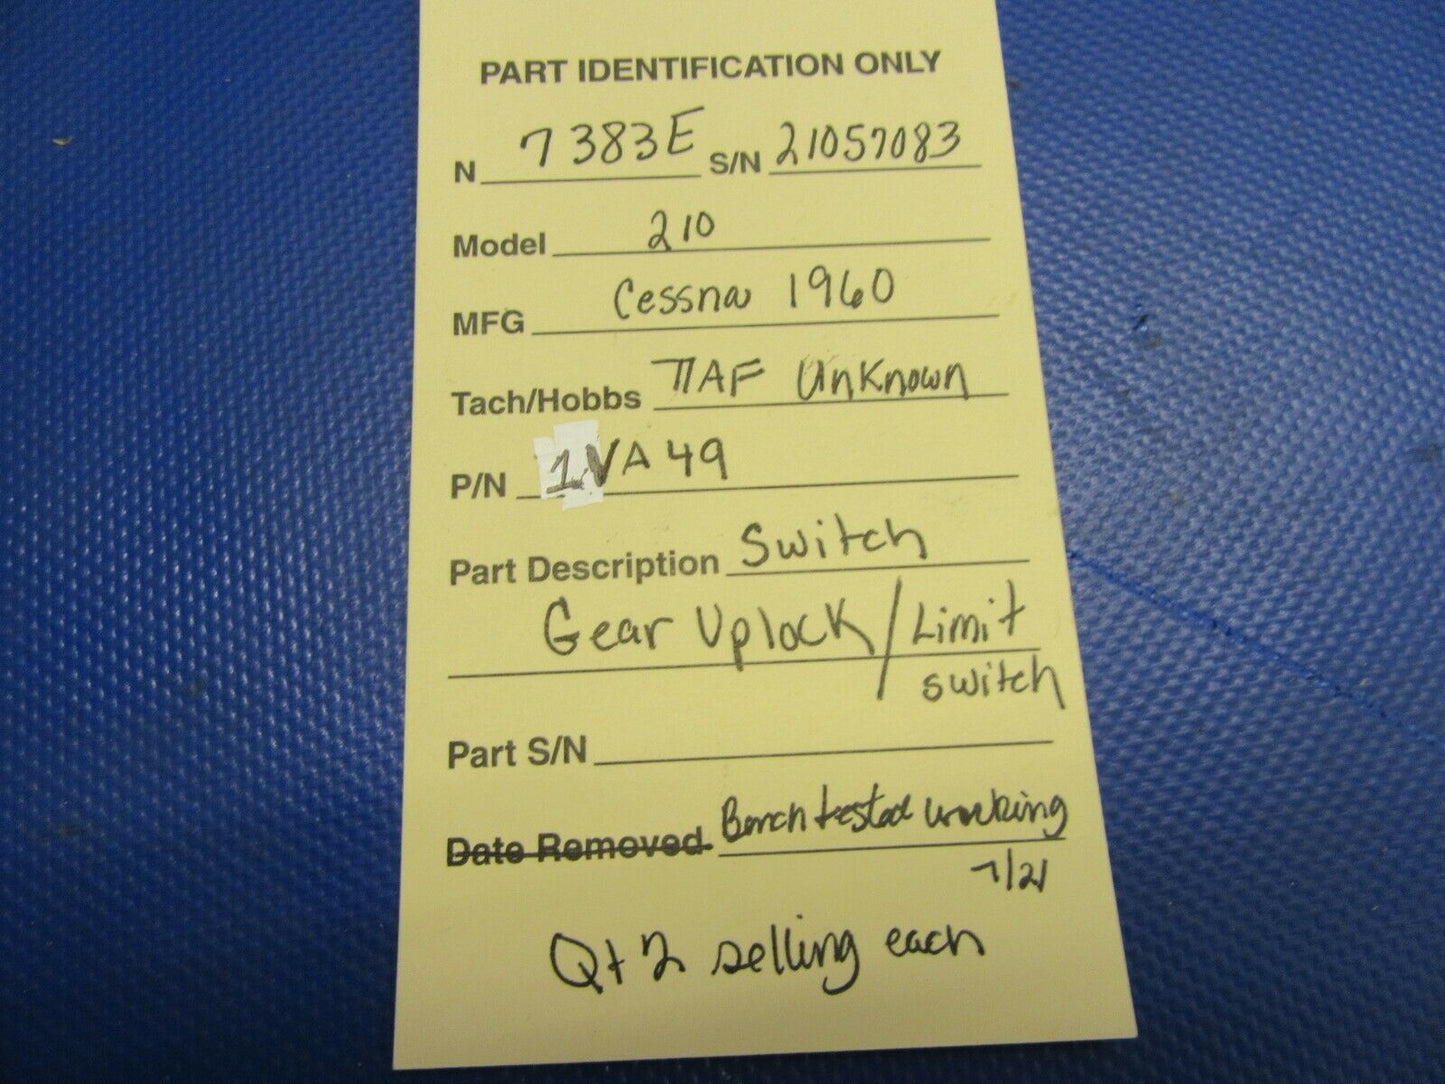 PART IDENTIFICATION ONLY
N 7383E S/N 21057083
Model 210
MFG Cessna 1960
Tach/Hobbs TTAF Unknown
P/N 1VA49
Part Description Switch
Gear Uplock / Limit
switch
Part S/N
Date Removed Bench tested working
7/21
Qt 2 selling each